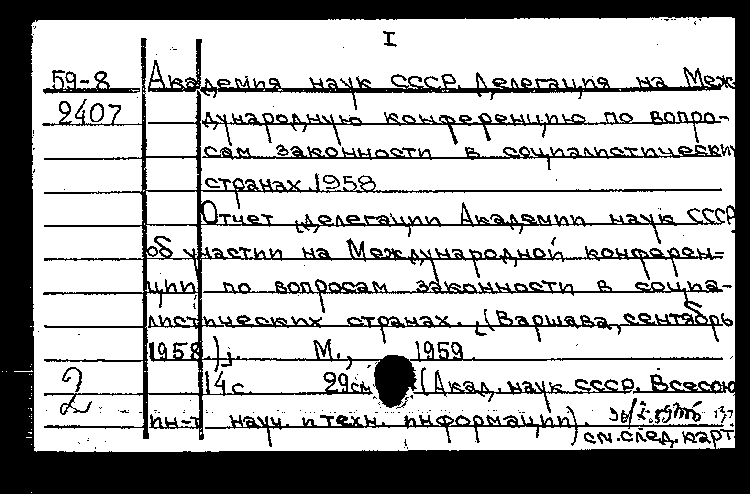 I
59-8 Академия наук СССР. Делегация на Меж-
2407 дународную конференцию по вопро-
сам законности в социалистических
странах. 1958
Отчет делегации Академии наук СССР
об участии на Международной конферен-
ции по вопросам законности в социа-
листических странах. (Варшава, сентябрь
1958). М., 1959.
2 14с. 29см (Акад. наук СССР. Всесою
ин-т науч. и техн. информации).
см. след. карт